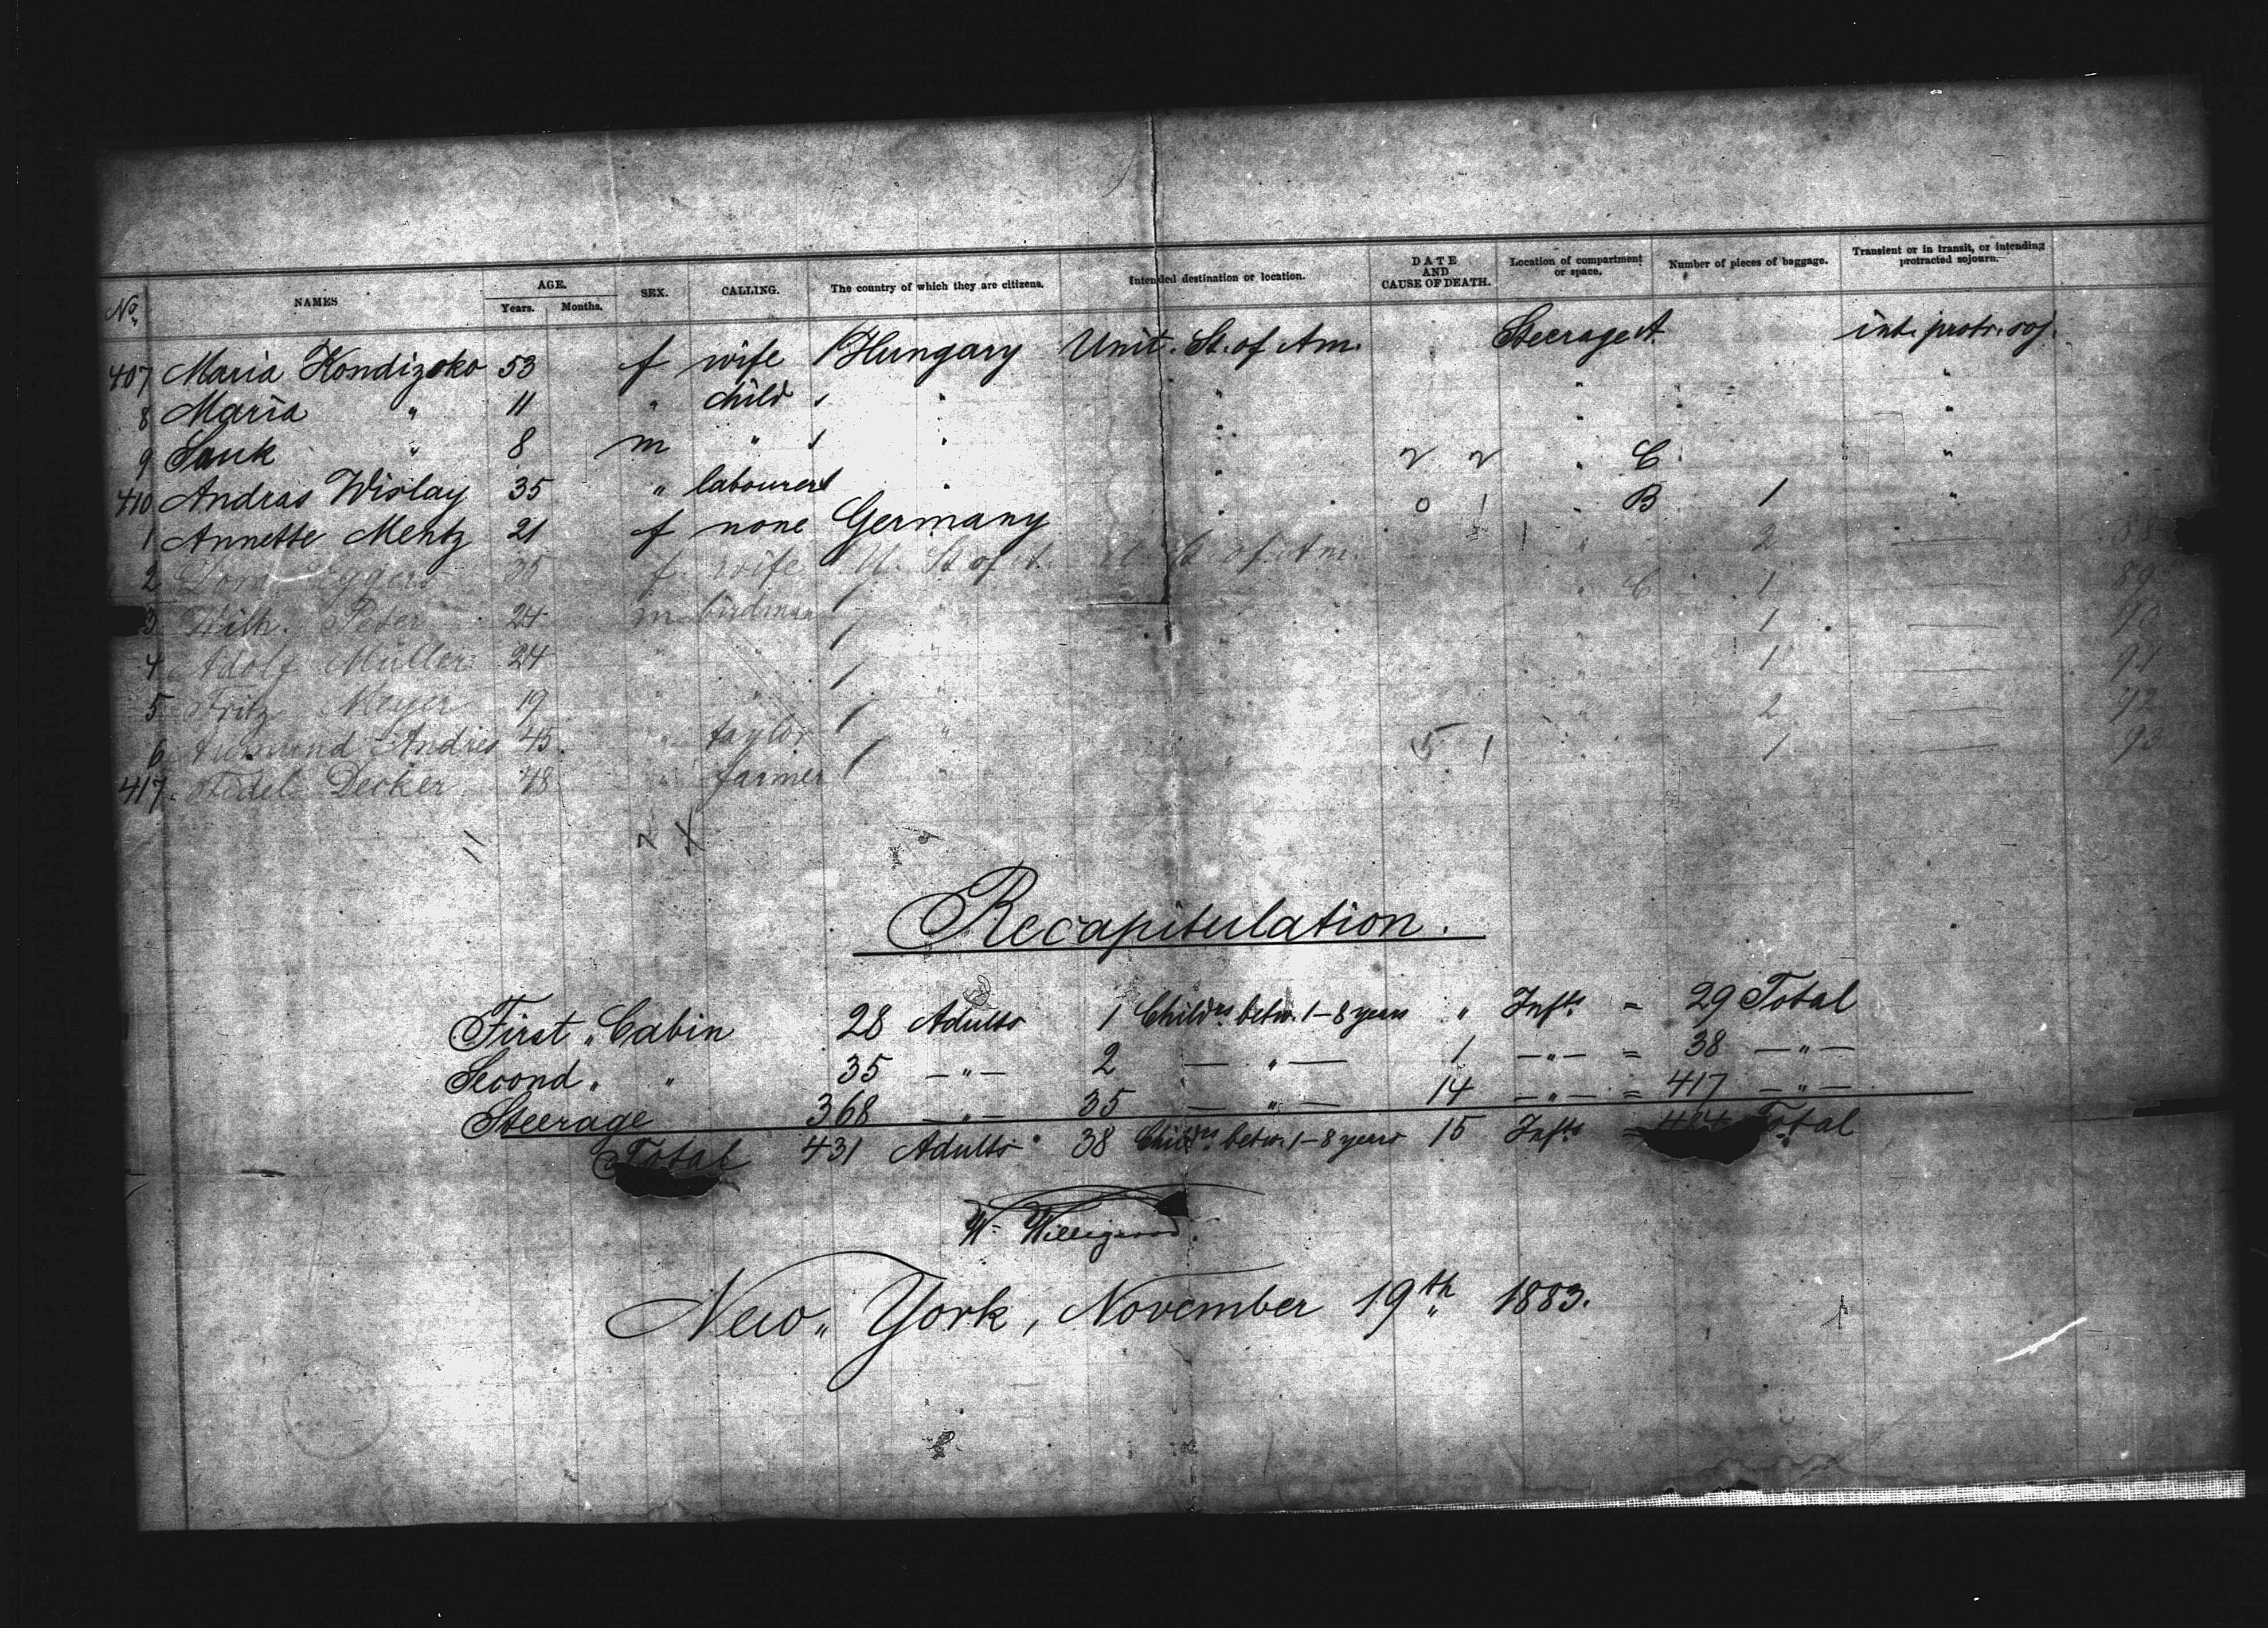 No. NAMES AGE. Years. Months. SEX. CALLING. The country of which they are citizens. Intended destination or location. DATE AND CAUSE OF DEATH. Location of compartment or space. Number of pieces of baggage. Transient or in transit, or intending protracted sojourn.
407 Maria Kondizoko 53 f wife Hungary Unit. St. of Am. Steerage A. int. protr. soj.
8 Maria " 11 " child " " " "
9 Sauk " 8 m " " " " "
410 Andras Wislay 35 " labourer " " " C "
1 Annette Mentz 21 f none Germany " " B 1 "
2 Eggers 35 f wife U. St. of A. U. St. of Am. " 2 —
3 Wilh. Peter 24 m birdman " C 1 — 89
4 Adolf Müller 24 " " " " 1 — 90
5 Fritz Meyer 19 " " " " 1 — 91
6 Andres 45 " taylor " " 2 — 92
417 Fidel Decker 48 " farmer " " 1 — 93
11
Recapitulation.
First „ Cabin 28 Adults 1 Childrs. betw. 1–8 years " Infts = 29 Total
Second „ " 35 —"— 2 — " — 1 —"— = 38 —"—
Steerage 368 —"— 35 — " — 14 —"— = 417 —"—
Total 431 Adults 38 Childrs. betw. 1–8 years 15 Infts = 484 Total
W. Willigerod
New„ York, November 19th 1883.